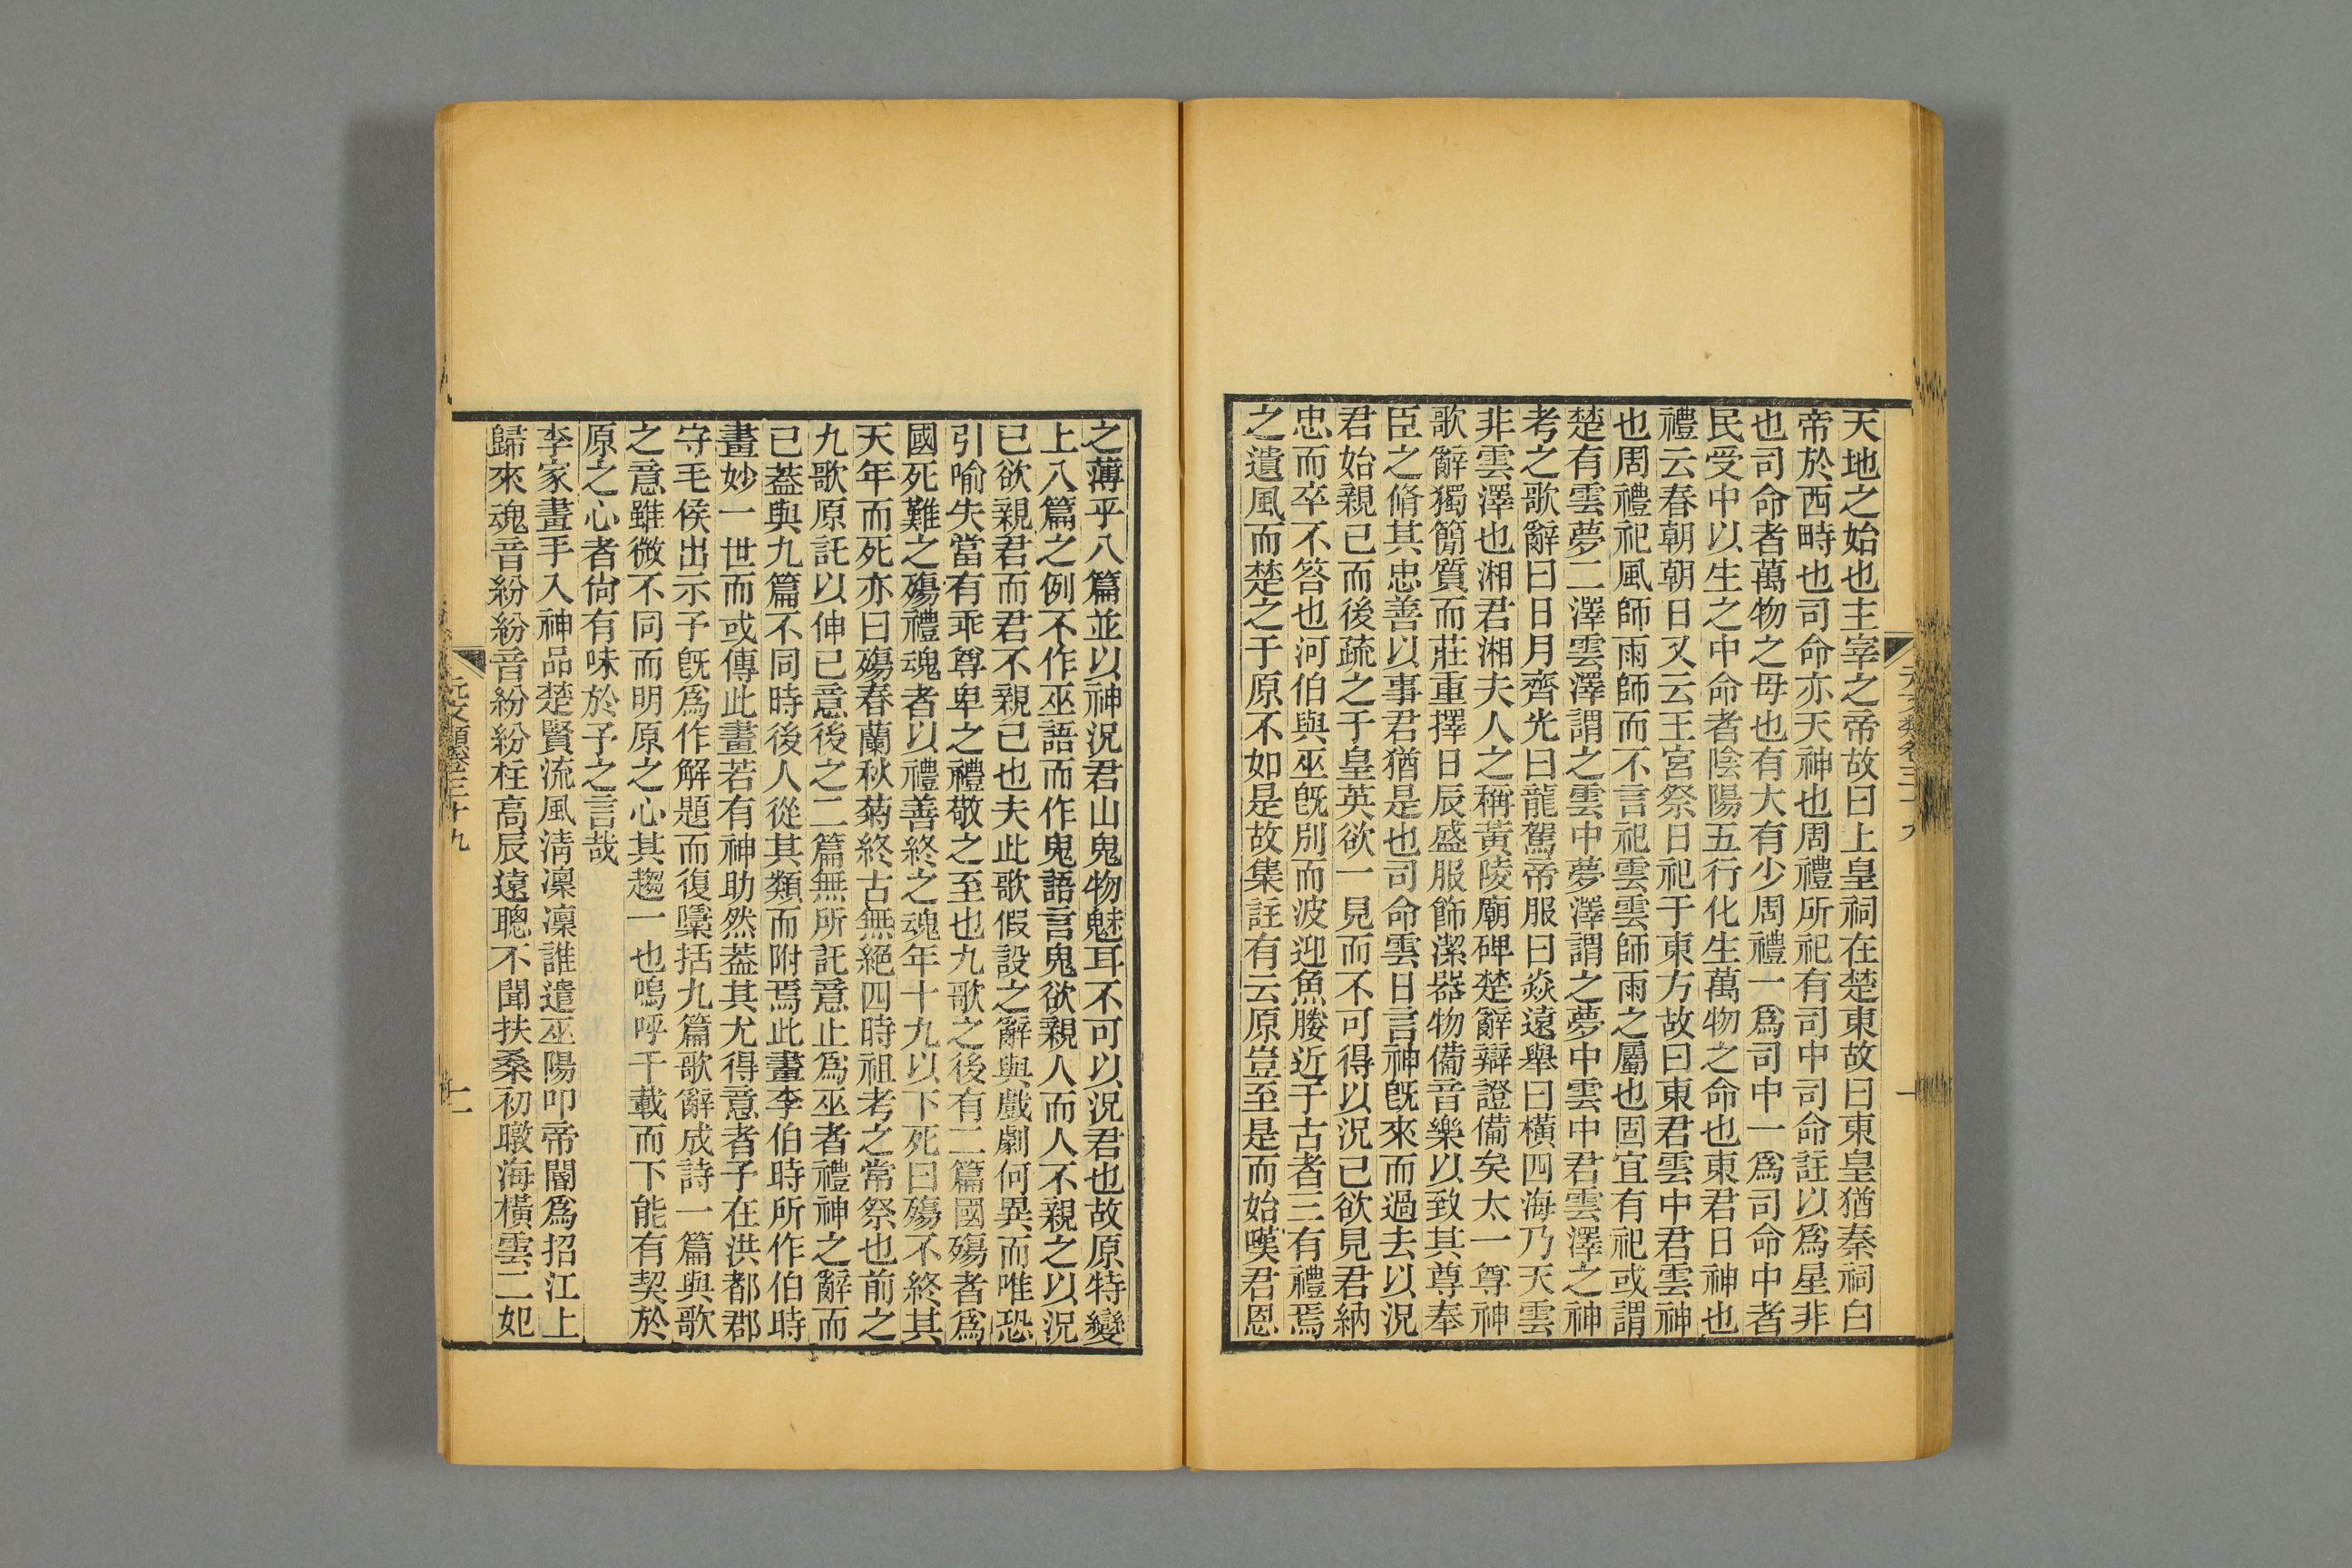 天地之始也主宰之帝故曰上皇祠在楚東故曰東皇猶秦祠白
帝於西畤也司命亦天神也周禮所祀有司中司命註以爲星非
也司命者萬物之母也有大有少周禮一爲司中一爲司命中者
民受中以生之中命者陰陽五行化生萬物之命也東君日神也
禮云春朝朝日又云王宮祭日祀于東方故曰東君雲中君雲神
也周禮祀風師雨師而不言祀雲雲師雨之屬也固宜有祀或謂
楚有雲夢二澤雲澤謂之雲中夢澤謂之夢中雲中君雲澤之神
考之歌辭曰日月齊光曰龍駕帝服曰焱遠舉曰橫四海乃天雲
非雲澤也湘君湘夫人之稱黃陵廟碑楚辭辯證備矣太一尊神
歌辭獨簡質而莊重擇日辰盛服飾潔器物備音樂以致其尊奉
臣之脩其忠善以事君猶是也司命雲日言神旣來而過去以況
君始親己而後疏之于皇英欲一見而不可得以況己欲見君納
忠而卒不答也河伯與巫旣別而波迎魚媵近于古者三有禮焉
之遺風而楚之于原不如是故集註有云原豈至是而始嘆君恩
元文類卷三十九
之薄乎八篇並以神況君山鬼物魅耳不可以況君也故原特變
上八篇之例不作巫語而作鬼語言鬼欲親人而人不親之以況
已欲親君而君不親己也夫此歌假設之辭與戲劇何異而唯恐
引喻失當有乖尊卑之禮敬之至也九歌之後有二篇國殤者爲
國死難之殤禮魂者以禮善終之魂年十九以下死曰殤不終其
天年而死亦曰殤春蘭秋菊終古無絕四時祖考之常祭也前之
九歌原託以伸已意後之二篇無所託意止爲巫者禮神之辭而
已蓋與九篇不同時後人從其類而附焉此畫李伯時所作伯時
畫妙一世而或傳此畫若有神助然蓋其尤得意者予在洪都郡
守毛侯出示予旣爲作解題而復櫽括九篇歌辭成詩一篇與歌
之意雖微不同而明原之心其趨一也嗚呼千載而下能有契於
原之心者尙有味於予之言哉
李家畫手入神品楚賢流風清凜凜誰遣巫陽叩帝閽爲招江上
歸來魂音紛紛音紛紛柱高辰遠聰不聞扶桑初暾海橫雲二妃
元文類卷三十九